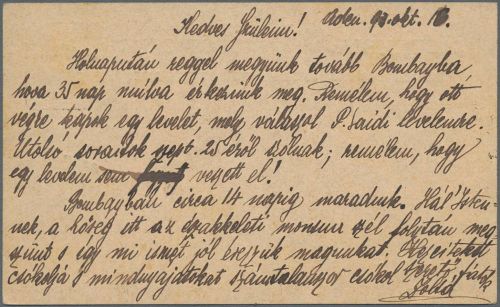 Aden. 93. okt. 16.
Kedves Szüleim!
Holnapután reggel megyünk tovább Bombayba,
hova 35 nap mulva érkezünk meg. Remélem, hogy ott
végre kapok egy levelet, mely válaszol P. Saidi levelemre.
Utolsó soraitok szept. 25éről szólnak; remélem, hogy
egy levelem sem veszett el!
Bombayban circa 14 napig maradunk. Hál' Isten-
nek, a hőség itt az északkeleti monsun szél folytán meg
szünt s igy mi ismét jól érezzük magunkat. Kezeiteket
csókolja s mindnyájatokat számtalanszor csókol szerető fiatok